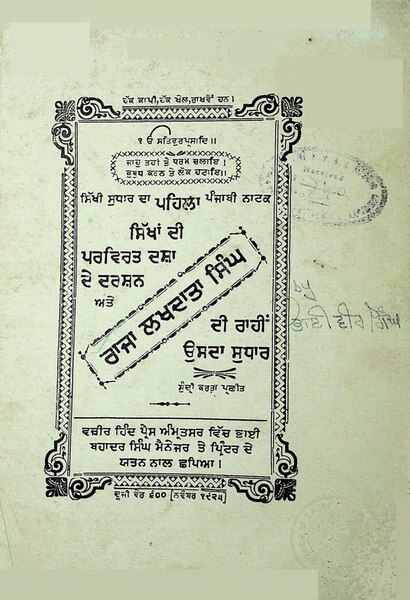 ਹੱਕ ਕਾਪੀ, ਹੱਕ ਖੇਲ, ਰਾਖਵੇਂ ਹਨ।
੧ ਓ ਸਤਿਗੁਰਪ੍ਰਸਾਦਿ॥
ਜਾਹੁ ਤਹਾਂ ਤੈ ਧਰਮ ਚਲਾਇ।
ਕੁਬੁਧ ਕਰਨ ਤੇ ਲੋਕ ਹਟਾਇ॥
ਸਿੱਖੀ ਸੁਧਾਰ ਦਾ ਪਹਿਲਾ ਪੰਜਾਬੀ ਨਾਟਕ
ਸਿੱਖਾਂ ਦੀ
ਪਰਵਿਰਤ ਦਸ਼ਾ
ਦੇ ਦਰਸ਼ਨ
ਅਤੇ
ਰਾਜਾ ਲਖਦਾਤਾ ਸਿੰਘ
ਦੀ ਰਾਹੀਂ
ਉਸਦਾ ਸੁਧਾਰ
ਸੁੰਦ੍ਰੀ ਕਰਤਾ ਪ੍ਰਣੀਤ
ਵਜ਼ੀਰ ਹਿੰਦ ਪ੍ਰੈਸ ਅੰਮ੍ਰਿਤਸਰ ਵਿੱਚ ਭਾਈ
ਬਹਾਦਰ ਸਿੰਘ ਮੈਨੇਜਰ ਤੇ ਪ੍ਰਿੰਟਰ ਦੇ
ਯਤਨ ਨਾਲ ਛਪਿਆ।
ਦੂਜੀ ਵੇਰ ੬੦੦ [ਨਵੰਬਰ ੧੯੨੫]
ਭਾਈ ਵੀਰ ਸਿੰਘ